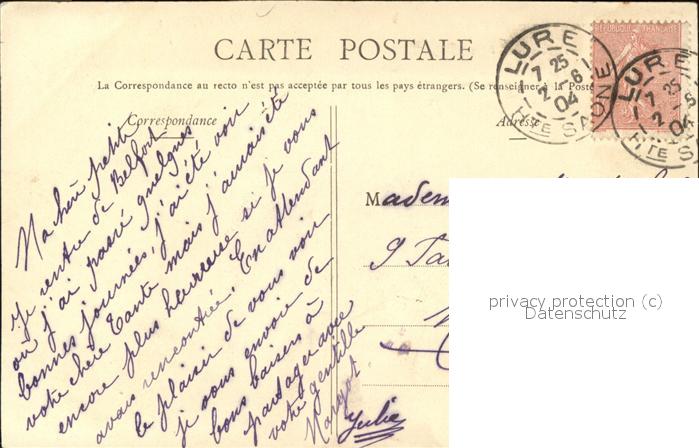 CARTE POSTALE
La Correspondance au recto n'est pas acceptée par tous les pays étrangers. (Se renseigner à la Poste
Correspondance
Adresse
RÉPUBLIQUE FRANÇAISE
LURE
7 25
2 - 6
04
HTE SAONE
LURE
7 25
2 - 6
04
HTE S
petit
Je rentre de Belfort
où j'ai passé quelques
bonnes journées, j'ai été voir
votre chère Tante mais j'aurais été
encore plus heureuse si je vous
avais rencontrée. En attendant
le plaisir de vous voir
je vous envoie de
bons baisers à
partager avec
votre gentille
Margot
Julie
Madem
9
privacy protection (c)
Datenschutz